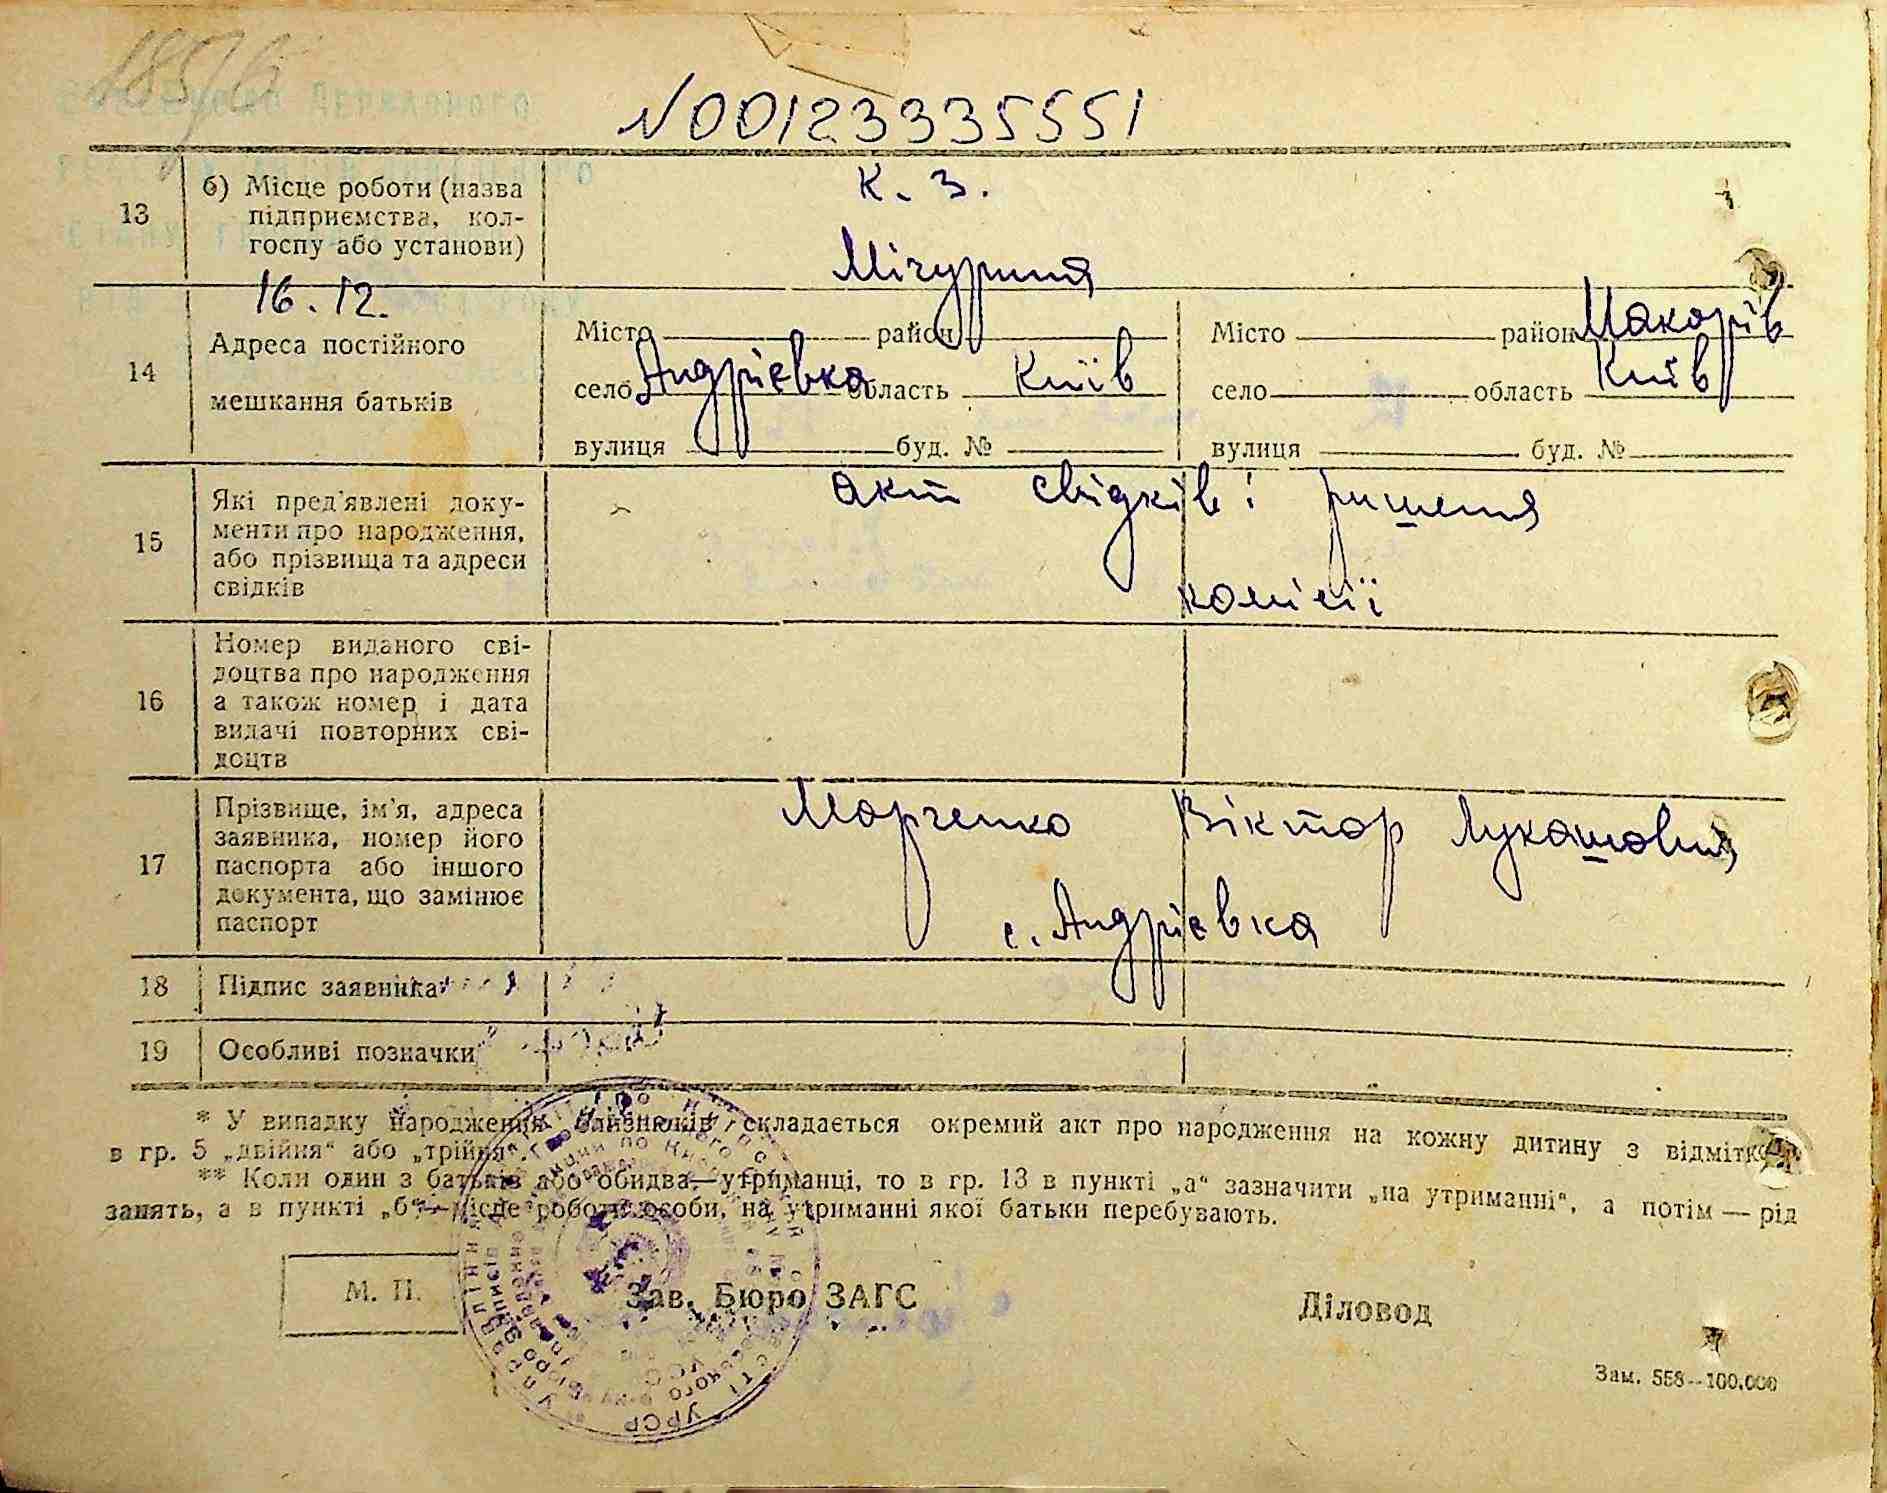 185/6
N00123335551
13 б) Місце роботи (назва
підприємства, кол-
госпу або установи)
К. З.
Мічуріна
16.12.
14 Адреса постійного
мешкання батьків
Місто район
село Андрієвка область Київ
вулиця буд. №
Місто район Макарів
село область Київ
вулиця буд. №
15 Які пред'явлені доку-
менти про народження,
або прізвища та адреси
свідків
акт свідків і ришення
комісії
16 Номер виданого сві-
доцтва про народження
а також номер і дата
видачі повторних сві-
доцтв
17 Прізвище, ім'я, адреса
заявника, номер його
паспорта або іншого
документа, що замінює
паспорт
Марченко Віктор Лукашович
с. Андрієвка
18 Підпис заявника
19 Особливі позначки
* У випадку народження близнюків складається окремий акт про народження на кожну дитину з відміткою
в гр. 5 „двійня“ або „трійня“.
** Коли один з батьків або обидва—утриманці, то в гр. 13 в пункті „а“ зазначити „на утриманні“, а потім — рід
занять, а в пункті „б“—місце роботи особи, на утриманні якої батьки перебувають.
М. П.
Зав. Бюро ЗАГС
Діловод
Зам. 558—100.000